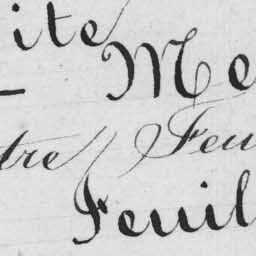 ite
Me
tre Feu
Feuil